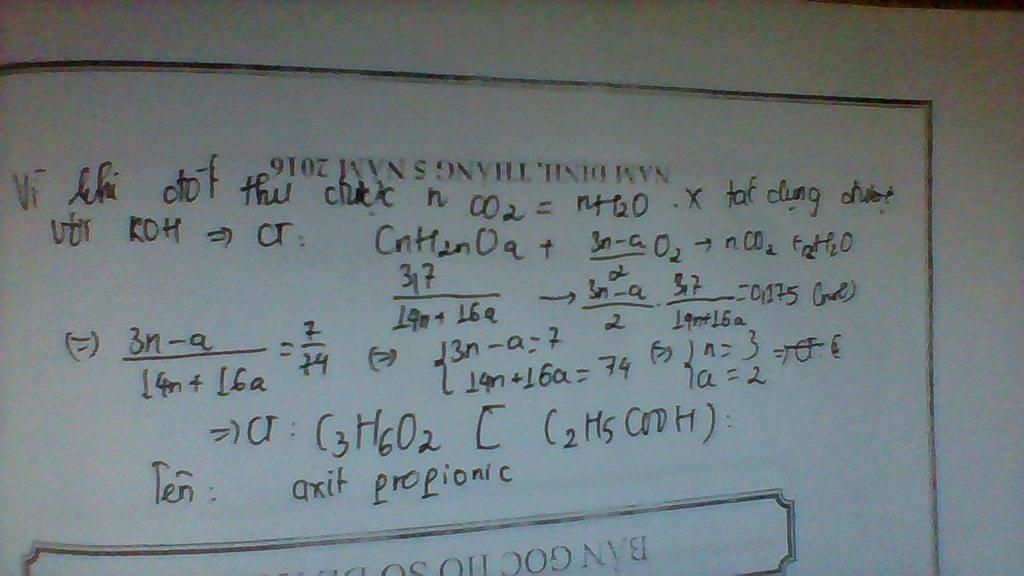 NAM ĐỊNH, THÁNG 5 NĂM 2016
Vì khi đốt thu được n CO2 = nH2O . X tác dụng được
với KOH => CT: CnH2nOa + 3n-a/2 O2 → nCO2 + nH2O
3,7/14n+16a → 3n-a/2 . 3,7/14n+16a = 0,175 (mol)
(=) 3n-a/14n+16a = 7/74 (=) {3n-a=7 14n+16a=74 (=) {n=3 a=2
=> CT: C3H6O2 [ C2H5COOH):
Tên: axit propionic
BẢN GỐC HỒ SƠ